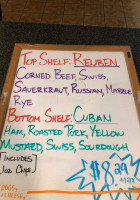 Top Shelf: Reuben
Corned Beef, Swiss,
Sauerkraut, Russian, Marble
Rye
Bottom Shelf: Cuban
Ham, Roasted Pork, Yellow
Mustard, Swiss, Sourdough
Includes
1oz Chips!
$8.29
+tax